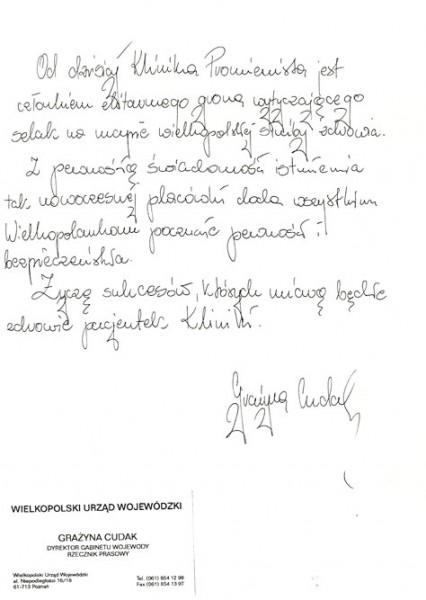 Od dzisiaj Klinika Promienista jest
członkiem elitarnego grona wytyczającego
szlak na mapie wielkopolskiej służby zdrowia.
Z pewnością świadomość istnienia
tak nowoczesnej placówki doda wszystkim
Wielkopolankom poczucie pewności i
bezpieczeństwa.
Życzę sukcesów, których miarą będzie
zdrowie pacjentek Kliniki.
Grażyna Cudak
WIELKOPOLSKI URZĄD WOJEWÓDZKI
GRAŻYNA CUDAK
DYREKTOR GABINETU WOJEWODY
RZECZNIK PRASOWY
Wielkopolski Urząd Wojewódzki
al. Niepodległości 16/18
61-713 Poznań
Tel. (061) 854 12 98
Fax (061) 854 13 97